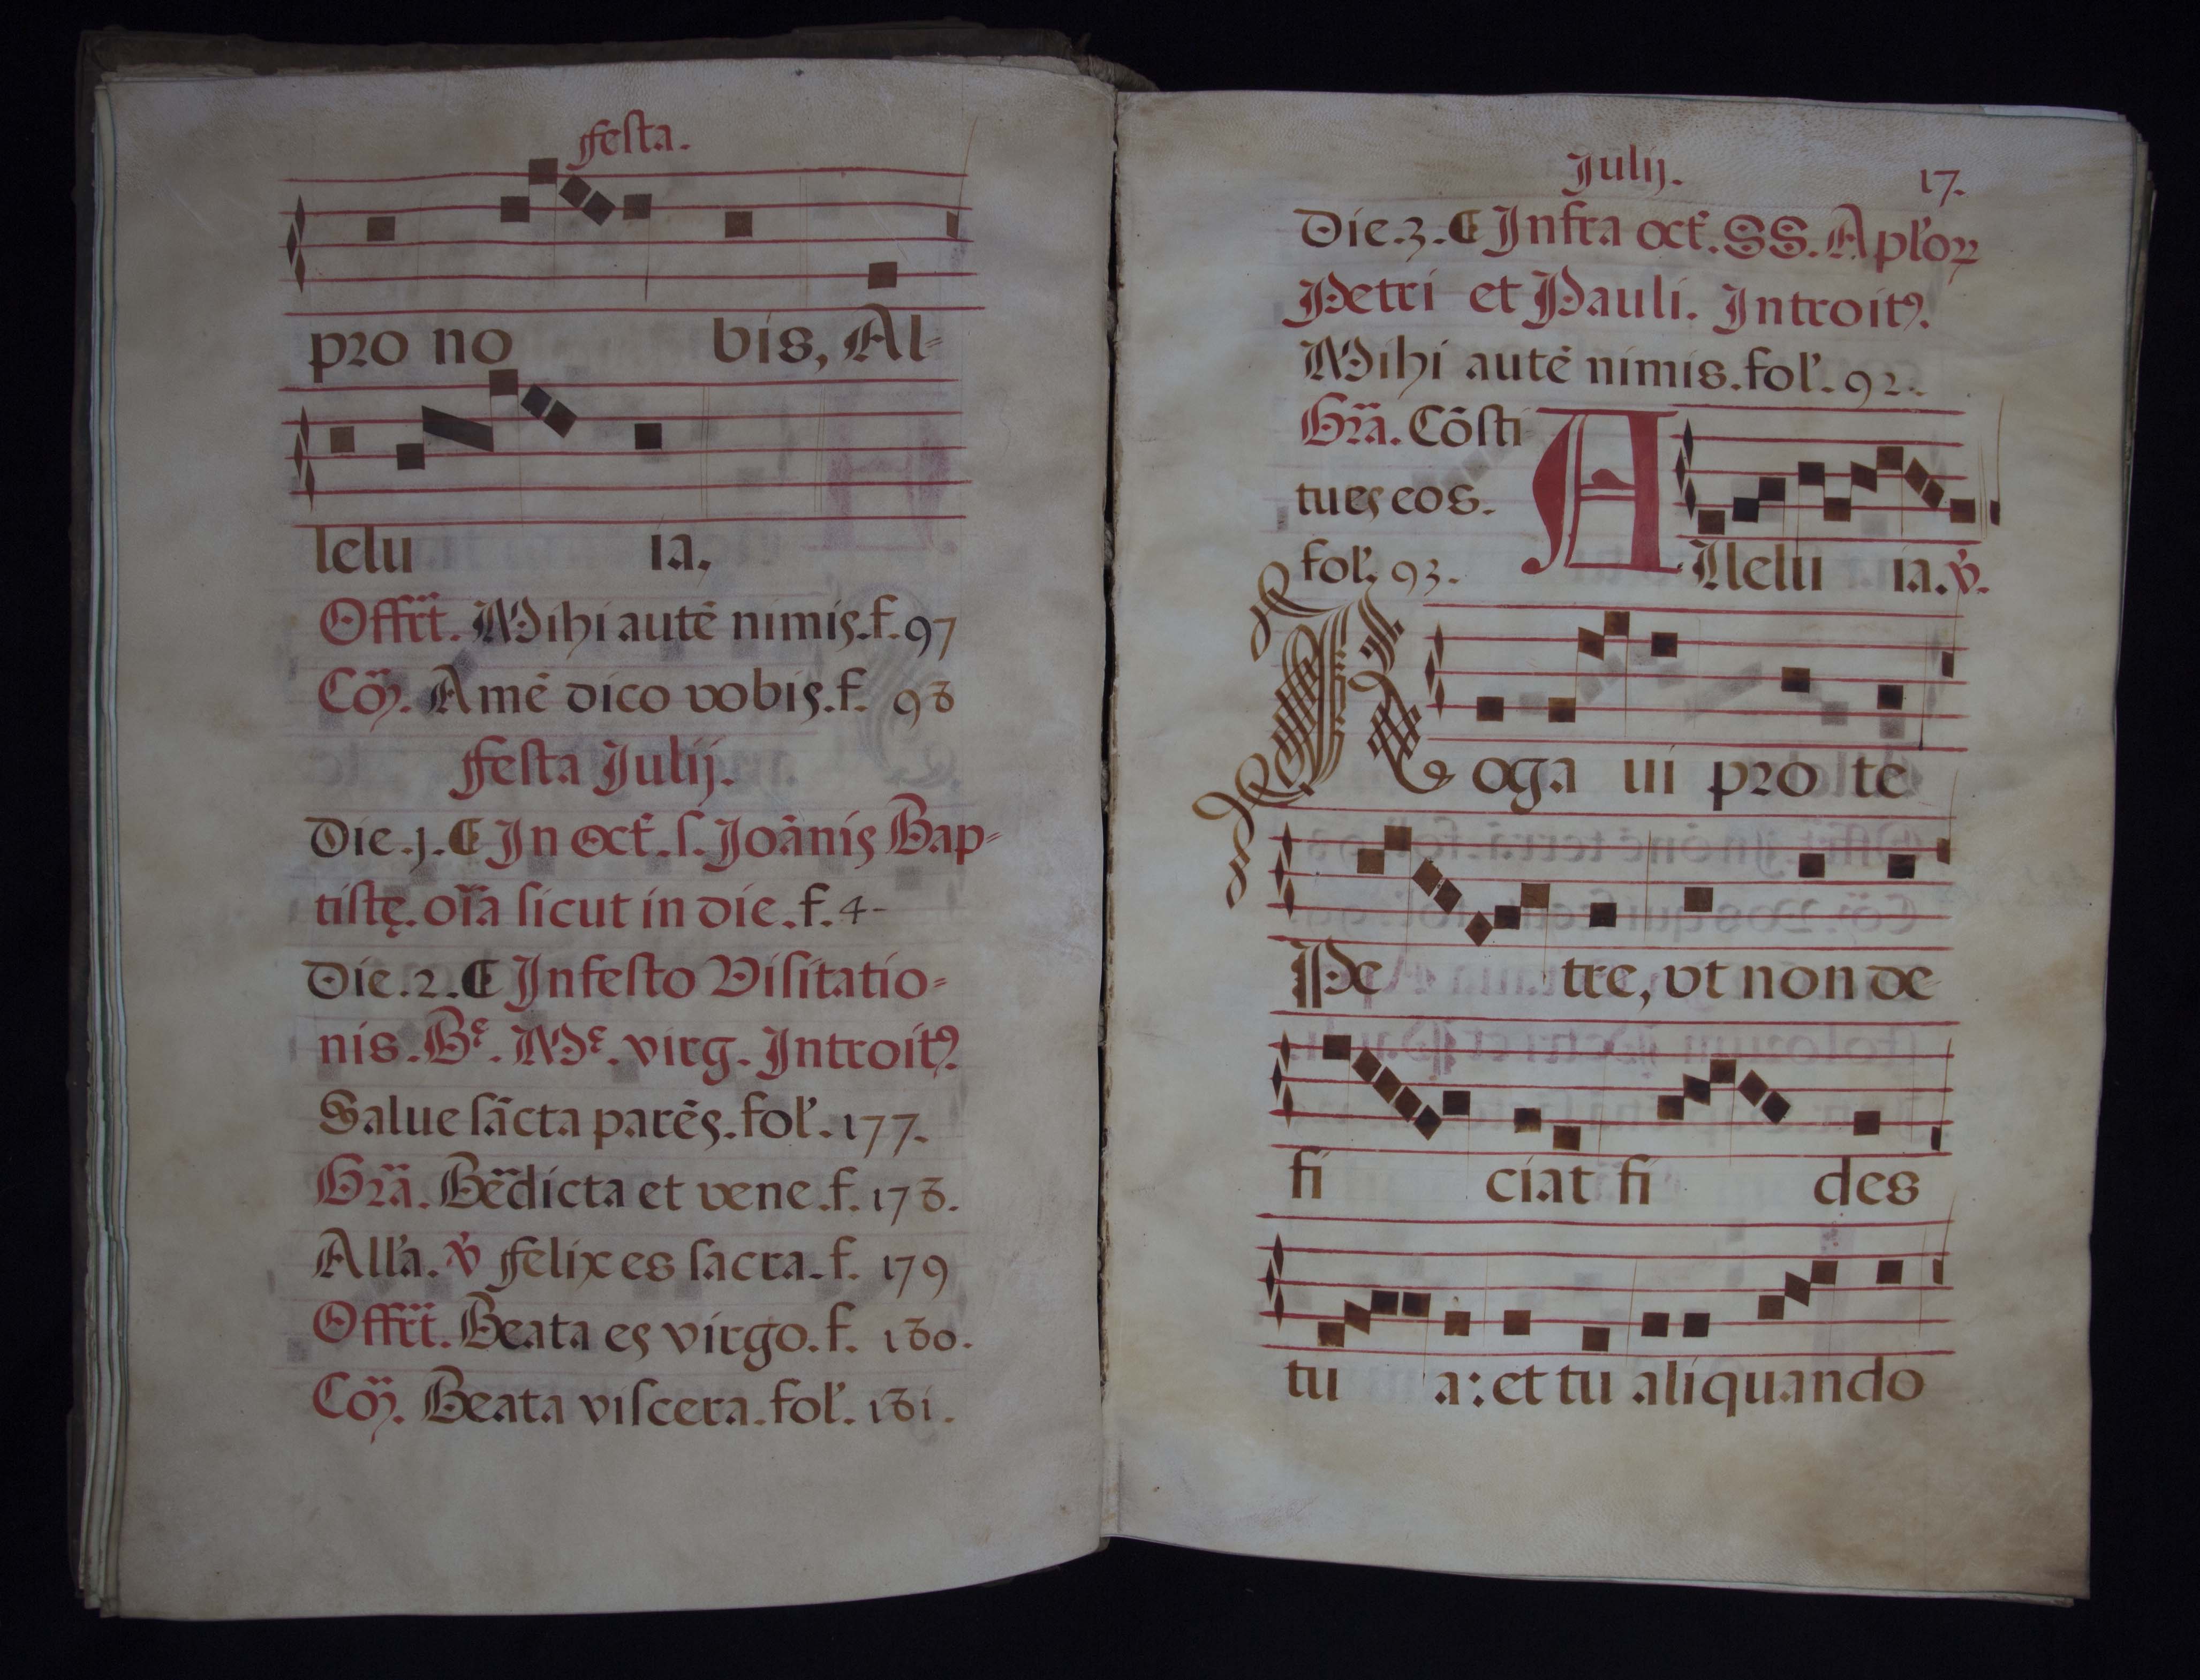 Festa.
pro no bis, Al-
lelu ia.
Offrt̃. Mihi autẽ nimis. f. 97
Cõ. Amẽ dico vobis. f. 98
Festa Julij.
Die. j. ¶ In Oct. s. Joãnis Bap-
tistę. oĩa sicut in die. f. 4-
Die. 2. ¶ In festo Visitatio-
nis. Bᵉ. Mᵉ. virg. Introitꝰ.
Salue sãcta parẽs. fol'. 177.
Grã. Bẽdicta et vene. f. 178.
All'a. v̓ Felix es sacra. f. 179
Offrt̃. Beata es virgo. f. 180.
Cõ. Beata viscera. fol'. 181.
Julij. 17.
Die. 3. ¶ Infra oct. SS. Apl'oꝝ
Petri et Pauli. Introitꝰ.
Mihi autẽ nimis. fol'. 92.
Grã. Cõsti
tues eos.
fol'. 93.
Allelu ia. v̓.
Roga ui pro te
Pe tre, vt non de-
fi ciat fi des
tu a: et tu aliquando